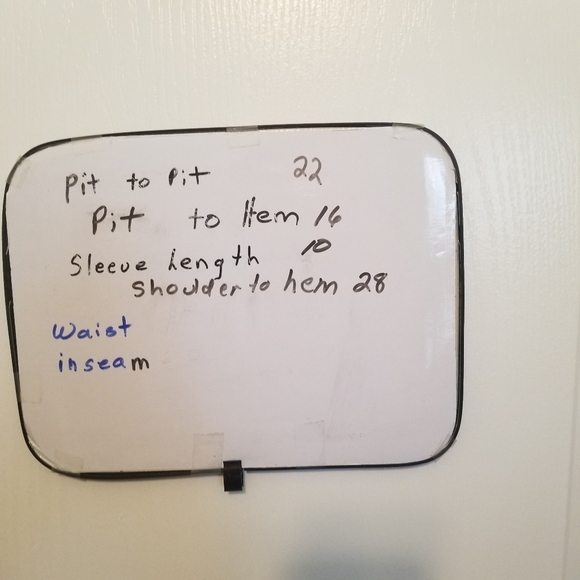 Pit to Pit 22
Pit to Hem 16
Sleeve Length 10
Shoulder to hem 28
Waist
inseam